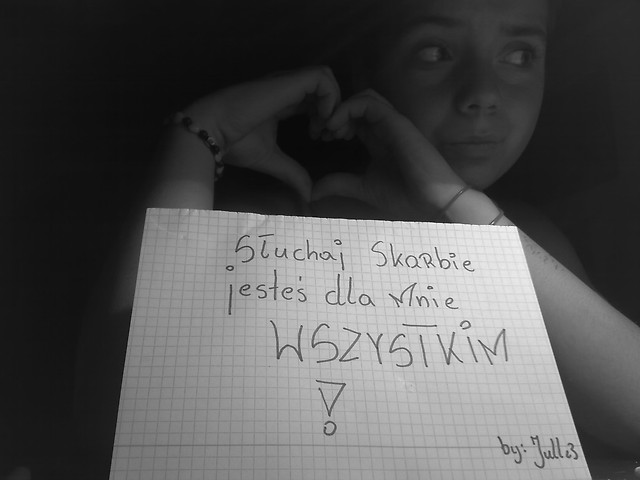 Słuchaj Skarbie
jesteś dla Mnie
WSZYSTKIM
!
by: Jull23